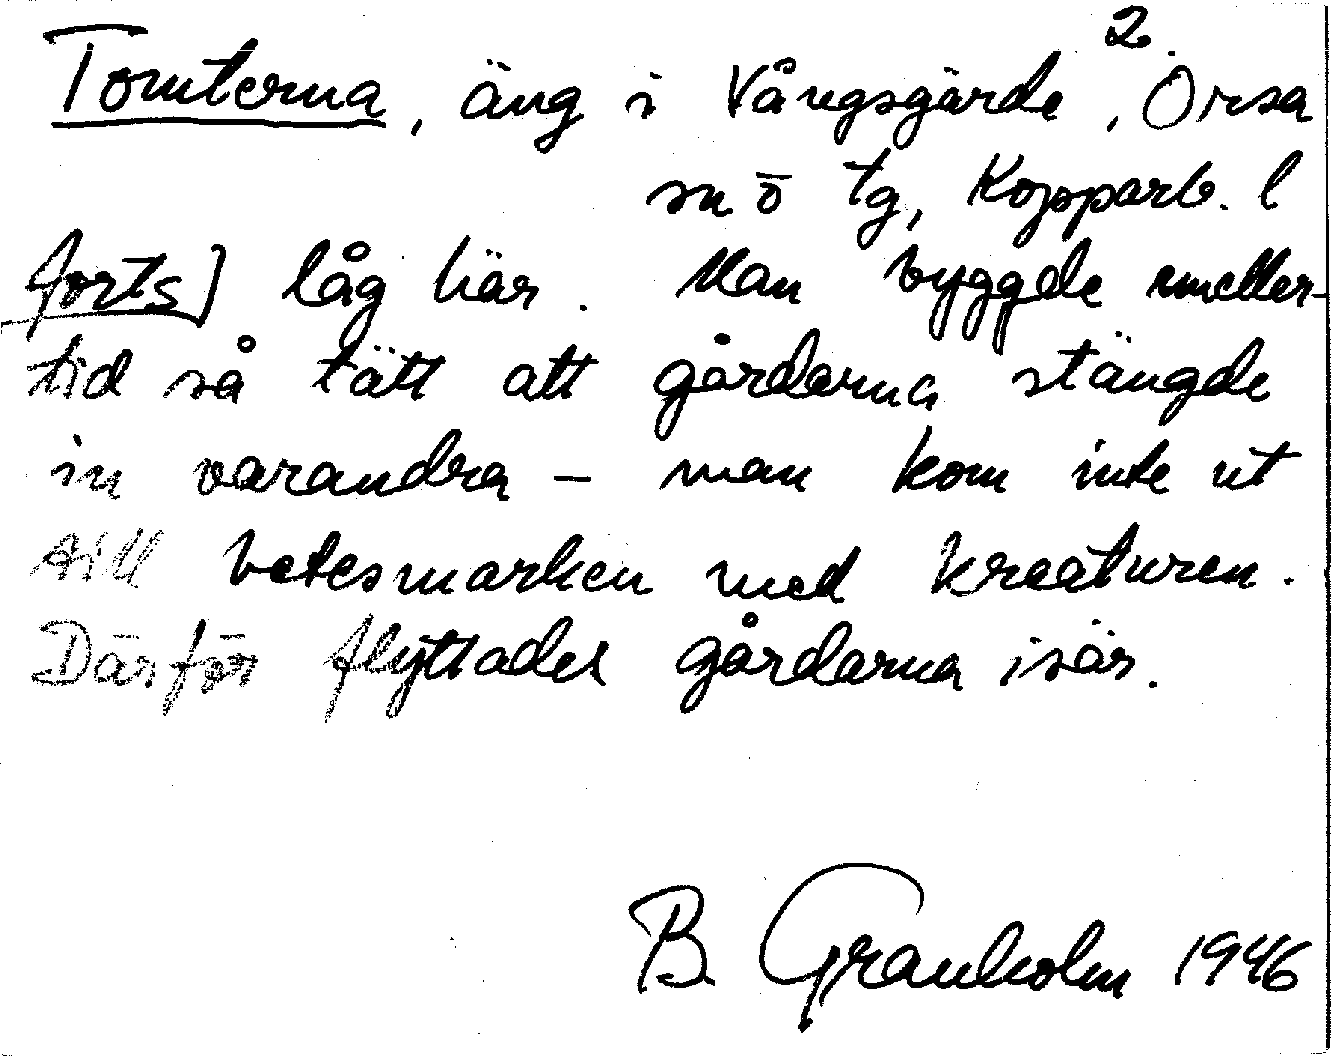 2.
Tomterna, äng i Vångsgärde, Orsa
sn ö tg, Kopparb. l
forts] låg här. Man byggde emeller-
tid så tätt att gårdarna stängde
in varandra – man kom inte ut
till betesmarken med kreaturen.
Därför flyttades gårdarna isär.
B Granholm 1946